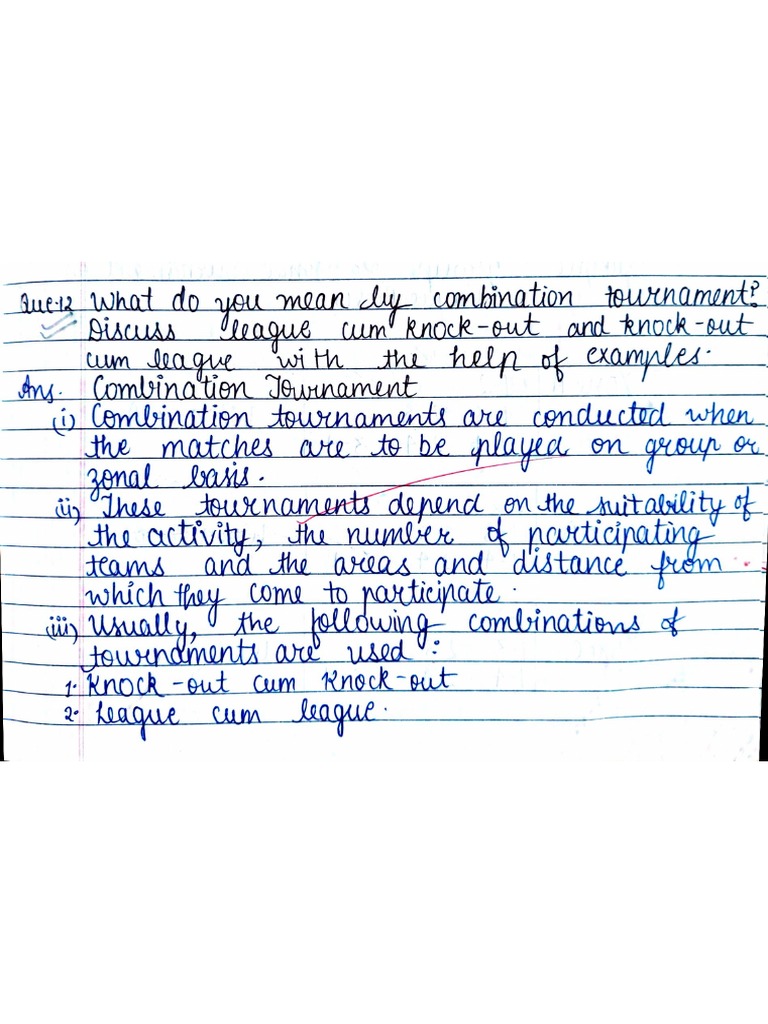 Que-12 What do you mean by combination tournament?
Discuss league cum knock-out and knock-out
cum league with the help of examples.
Ans. Combination Tournament
(i) Combination tournaments are conducted when
the matches are to be played on group or
zonal basis.
(ii) These tournaments depend on the suitability of
the activity, the number of participating
teams and the areas and distance from
which they come to participate.
(iii) Usually, the following combinations of
tournaments are used:
1. Knock-out cum Knock-out
2. League cum league.